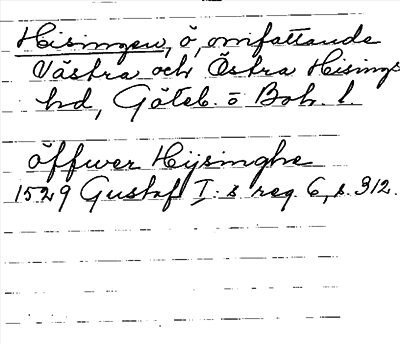 Hisingen, ö, omfattande
Västra och Östra Hisings
hd, Göteb. o Boh. l.
öffwer Hijsinghe
1529 Gustaf I:s reg. 6, s. 312.